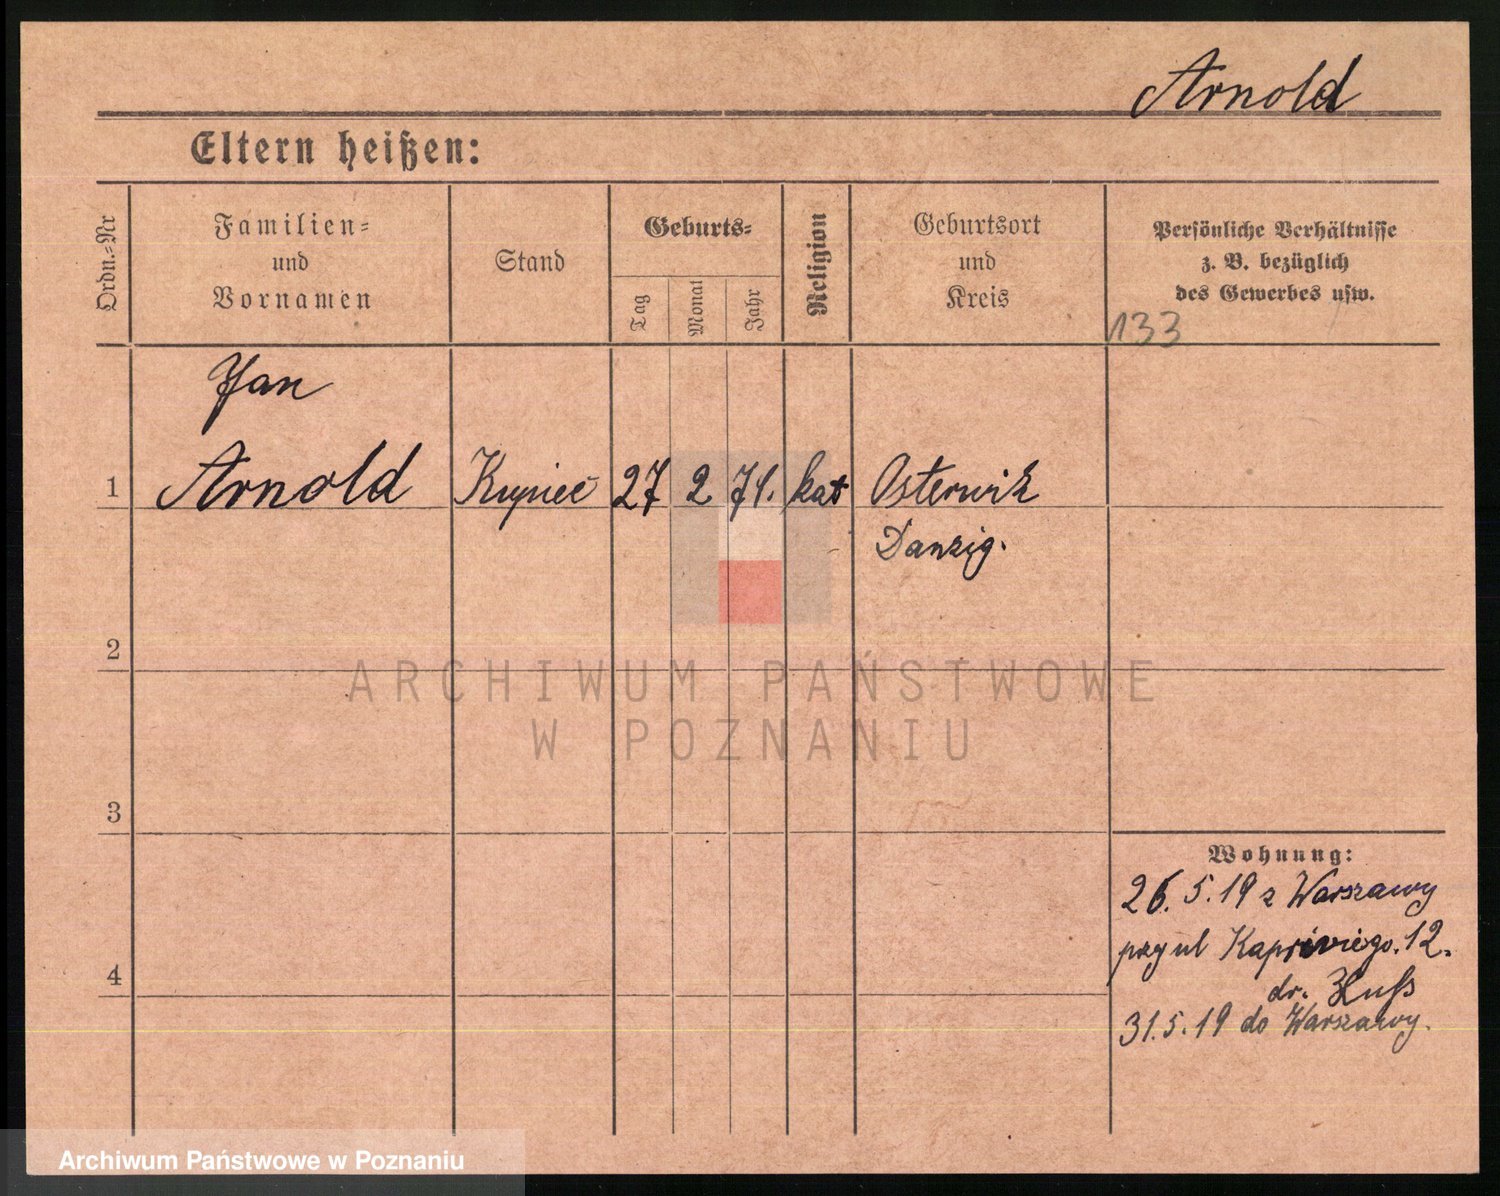 Arnold
Eltern heißen:
Ordn.-Nr
Familien-
und
Vornamen
Stand
Geburts-
Tag
Monat
Jahr
Religion
Geburtsort
und
Kreis
Persönliche Verhältnisse
z. B. bezüglich
des Gewerbes usw.
133
Jan
1 Arnold Kupiec 27 2 71. kat Osterwik
Danzig.
2
ARCHIWUM PAŃSTWOWE
W POZNANIU
3
Wohnung:
26. 5. 19 z Warszawy
przy ul Kapriviego. 12.
4
dr. Huß
31. 5. 19 do Warszawy.
Archiwum Państwowe w Poznaniu